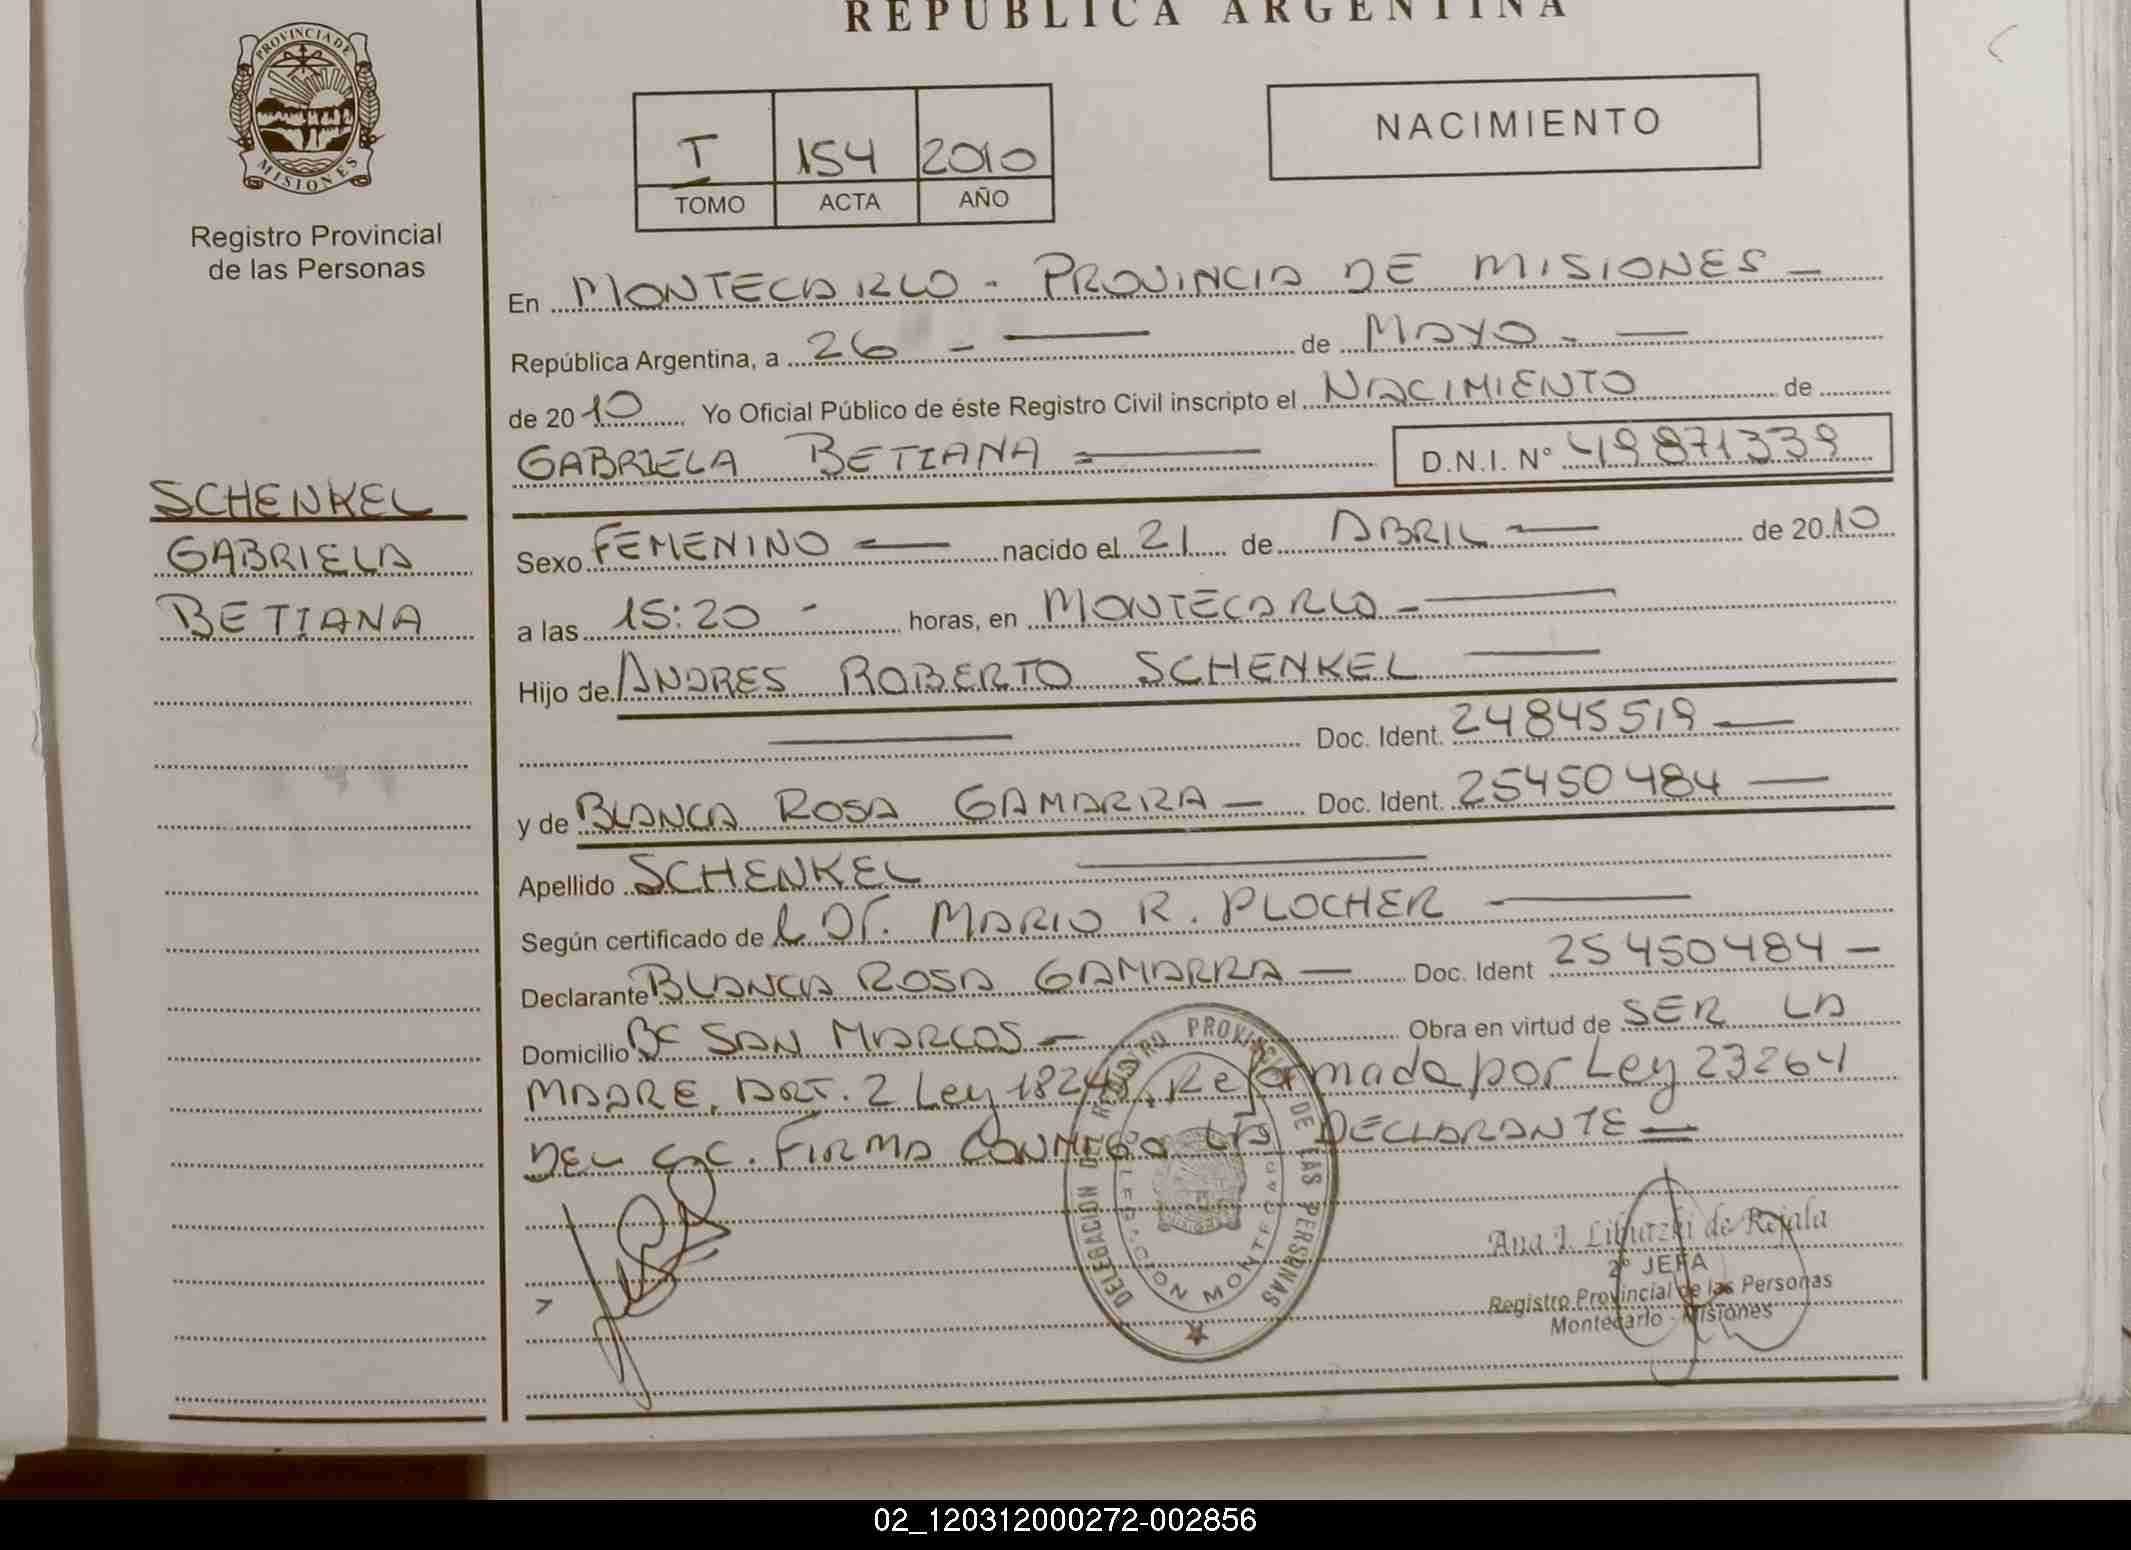 REPUBLICA ARGENTINA
PROVINCIA DE
MISIONES
Registro Provincial
de las Personas
I 154 2010
TOMO ACTA AÑO
NACIMIENTO
En MONTECARLO - PROVINCIA DE MISIONES -
República Argentina, a 26 - de MAYO -
de 2010 Yo Oficial Público de éste Registro Civil inscripto el NACIMIENTO de
GABRIELA BETIANA D.N.I. N° 49871339
SCHENKEL
GABRIELA
BETIANA
Sexo FEMENINO nacido el 21 de ABRIL de 2010
a las 15:20 - horas, en MONTECARLO -
Hijo de ANDRES ROBERTO SCHENKEL
Doc. Ident. 24845519
y de BLANCA ROSA GAMARRA - Doc. Ident. 25450484
Apellido SCHENKEL
Según certificado de l Dr. MARIO R. PLOCHER
Declarante BLANCA ROSA GAMARRA - Doc. Ident 25450484 -
Domicilio Bº SAN MARCOS - Obra en virtud de SER LA
MADRE, ART. 2 Ley 18248, Reformada por Ley 23264
DEL C.C. FIRMA CONMIGO LA DECLARANTE
DELEGACION DE REGISTRO PROVINCIAL DE LAS PERSONAS
DELEGACION MONTECARLO
Ana I. de Rejala
2º JEFA
Registro Provincial de las Personas
Montecarlo - Misiones
02_120312000272-002856